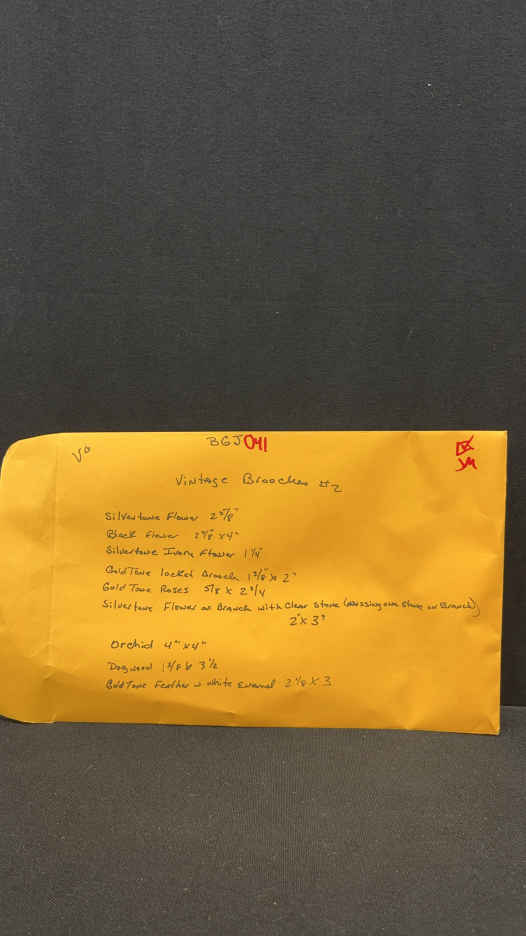 BGJ041
Vintage Brooches #2
Silvertone Flower 2 5/8"
Black Flower 2 7/8" x 4"
Silvertone Ivory Flower 1 1/4"
Gold Tone locket Brooch 1 3/8" x 2"
Gold Tone Roses 5/8 x 2 3/4
Silvertone Flower on Branch with Clear Stone (missing one stone on Branch)
2" x 3"
Orchid 4" x 4"
Dogwood 1 3/8 x 3 1/2
Gold Tone Feather w White Enamel 2 1/8 x 3